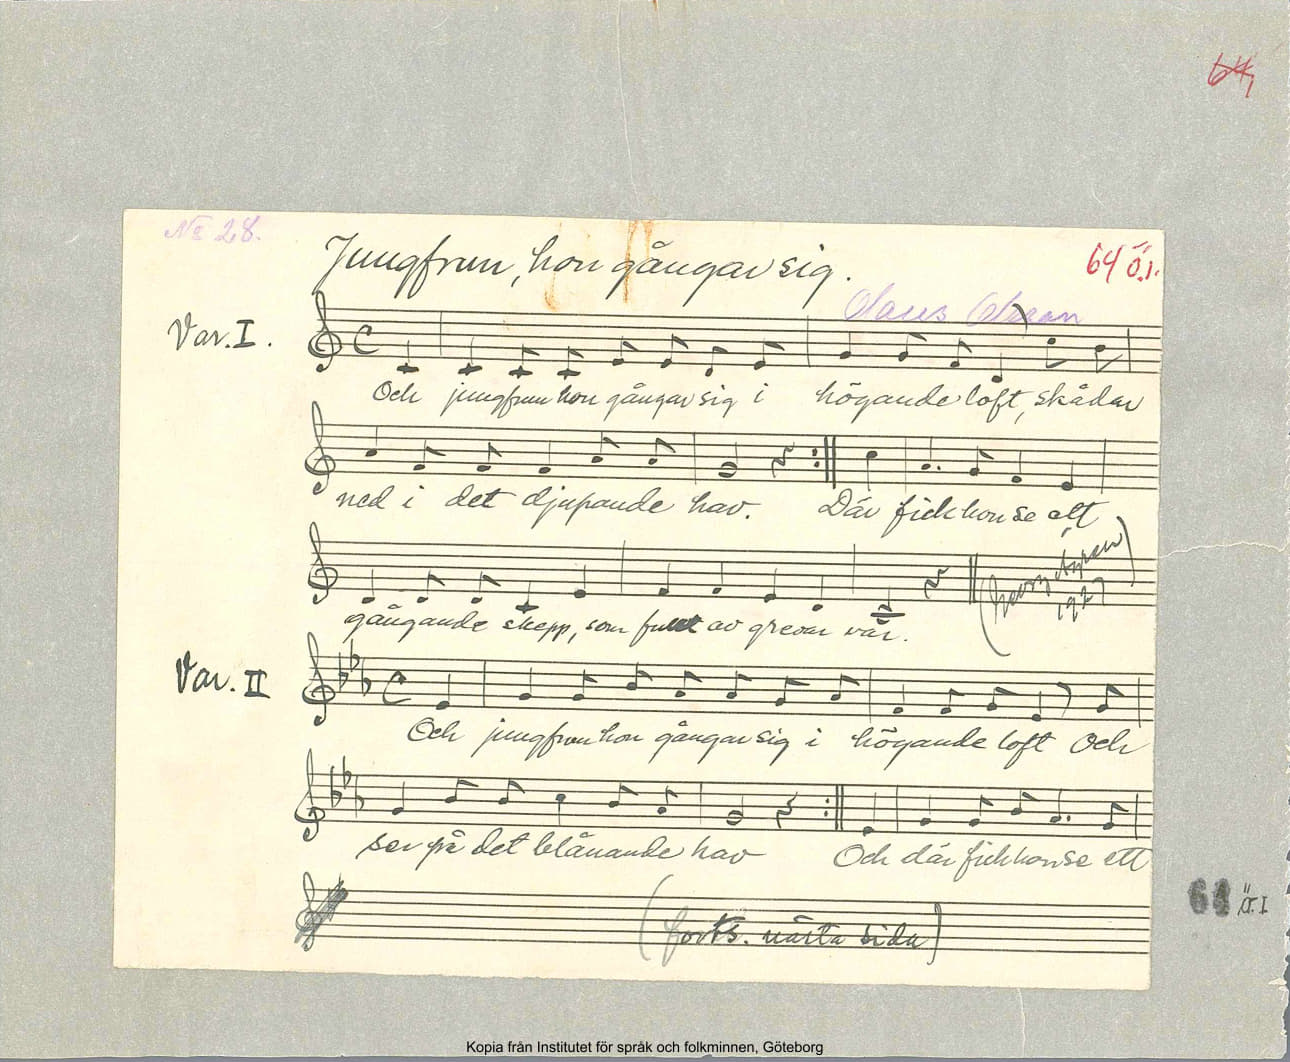 64,
№ 28.
Jungfrun, hon gångar sig.
64 Ö.1.
Var. I.
Och jungfrun hon gångar sig i högande loft, skådar
ned i det djupande hav. Där fick hon se ett
gångande skepp, som fullt av grevar var.
1927
Var. II
Och jungfrun hon gångar sig i högande loft Och
ser på det blånande hav Och där fick hon se ett
(forts. nästa sida)
64 Ö.I
Kopia från Institutet för språk och folkminnen, Göteborg